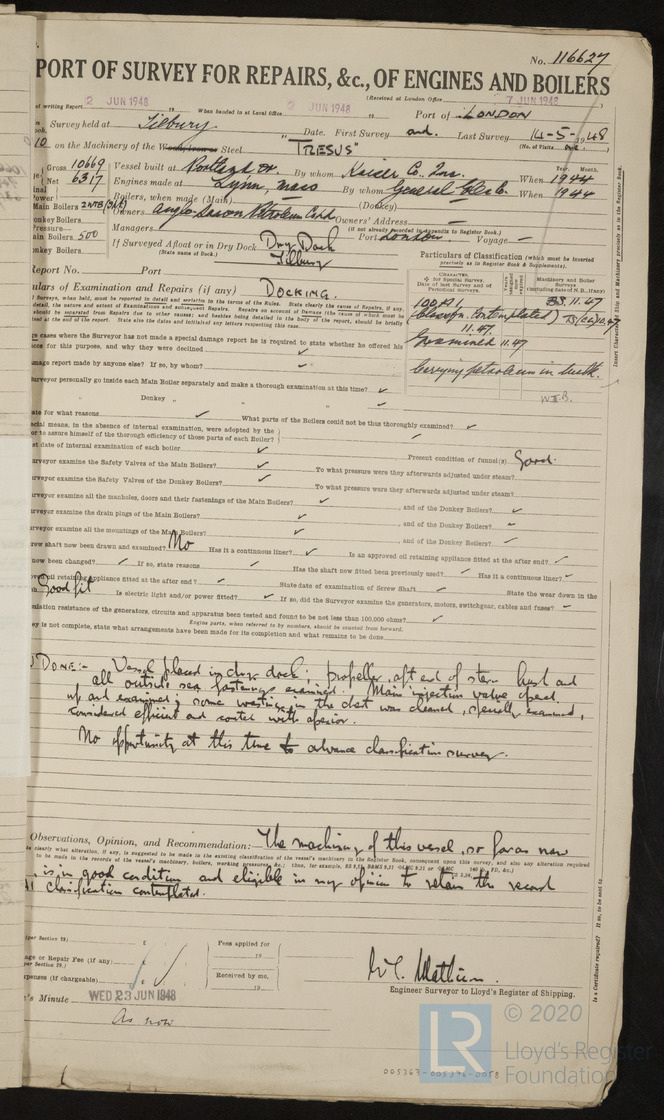 No. 116627
PORT OF SURVEY FOR REPAIRS, &c., OF ENGINES AND BOILERS
(Received at London Office 7 JUN 1948 )
of writing Report 2 JUN 1948 19 When handed in at Local Office 2 JUN 1948 19 Port of LONDON
Survey held at Tilbury Date. First Survey and. Last Survey 14-5-1948
(No. of Visits one.)
10 on the Machinery of the Wood, Iron or Steel "TRESUS"
Gross 10669 Vessel built at Portland Or. By whom Kaiser Co. Inc. When 1944
Net 6317 Engines made at Lynn, Mass By whom General Elec Co. When 1944
Boilers, when made (Main) (Donkey)
Main Boilers 2WTB Owners Anglo Saxon Petroleum Co Ltd Owners' Address
(if not already recorded in Appendix to Register Book.)
Donkey Boilers Managers Port London Voyage
Pressure—
Main Boilers 500 If Surveyed Afloat or in Dry Dock Dry Dock
Donkey Boilers (State name of Dock.) Tilbury
Particulars of Classification (which must be inserted
precisely as in Register Book & Supplements).
Report No. Port
100A1
(Classfn. Contemplated)
11.47
BS. 11.47
Examined 11.47
Carrying petroleum in bulk.
W.T.B.
ulars of Examination and Repairs (if any) DOCKING.
cases where the Surveyor has not made a special damage report he is required to state whether he offered his
ces for this purpose, and why they were declined ✓
amage report made by anyone else? If so, by whom? ✓
urveyor personally go inside each Main Boiler separately and make a thorough examination at this time? ✓
" Donkey " " ✓
ate for what reasons ✓ What parts of the Boilers could not be thus thoroughly examined? ✓
ecial means, in the absence of internal examination, were adopted by the
or to assure himself of the thorough efficiency of those parts of each Boiler? ✓
st date of internal examination of each boiler ✓ Present condition of funnel(s) Good.
urveyor examine the Safety Valves of the Main Boilers? ✓ To what pressure were they afterwards adjusted under steam?
urveyor examine the Safety Valves of the Donkey Boilers? ✓ To what pressure were they afterwards adjusted under steam?
urveyor examine all the manholes, doors and their fastenings of the Main Boilers? ✓ , and of the Donkey Boilers? ✓
urveyor examine the drain plugs of the Main Boilers? ✓ , and of the Donkey Boilers? ✓
urveyor examine all the mountings of the Main Boilers? ✓ , and of the Donkey Boilers? ✓
rew shaft now been drawn and examined? No Has it a continuous liner? ✓ Is an approved oil retaining appliance fitted at the after end? ✓
now been changed? ✓ If so, state reasons ✓ Has the shaft now fitted been previously used? ✓ Has it a continuous liner? ✓
oved oil retaining appliance fitted at the after end? ✓ State date of examination of Screw Shaft ✓ State the wear down in the
Good fit Is electric light and/or power fitted? ✓ If so, did the Surveyor examine the generators, motors, switchgear, cables and fuses? ✓
ulation resistance of the generators, circuits and apparatus been tested and found to be not less than 100,000 ohms? ✓
Engine parts, when referred to by numbers, should be counted from forward.
ey is not complete, state what arrangements have been made for its completion and what remains to be done
DONE:- Vessel placed in dry dock; propeller, aft end of stern bush and
all outside sea fastenings examined. Main injection valve opened
up and examined; some wastings in the chest was cleaned, specially examined,
considered efficient and coated with apexior.
No opportunity at this time to advance classification survey.
Observations, Opinion, and Recommendation:— The machinery of this vessel, so far as now
is in good condition and eligible in my opinion to retain the record
classification contemplated.
(per Section 29.) £
Fees applied for
19
age or Repair Fee (if any) £
(per Section 29.)
Received by me,
19
xpenses (if chargeable) £
Engineer Surveyor to Lloyd's Register of Shipping.
's Minute WED 23 JUN 1948
As now
Is a Certificate required? If so, to be sent to
© 2020
LR
Lloyd's Register
Foundation
005367-005376-0058